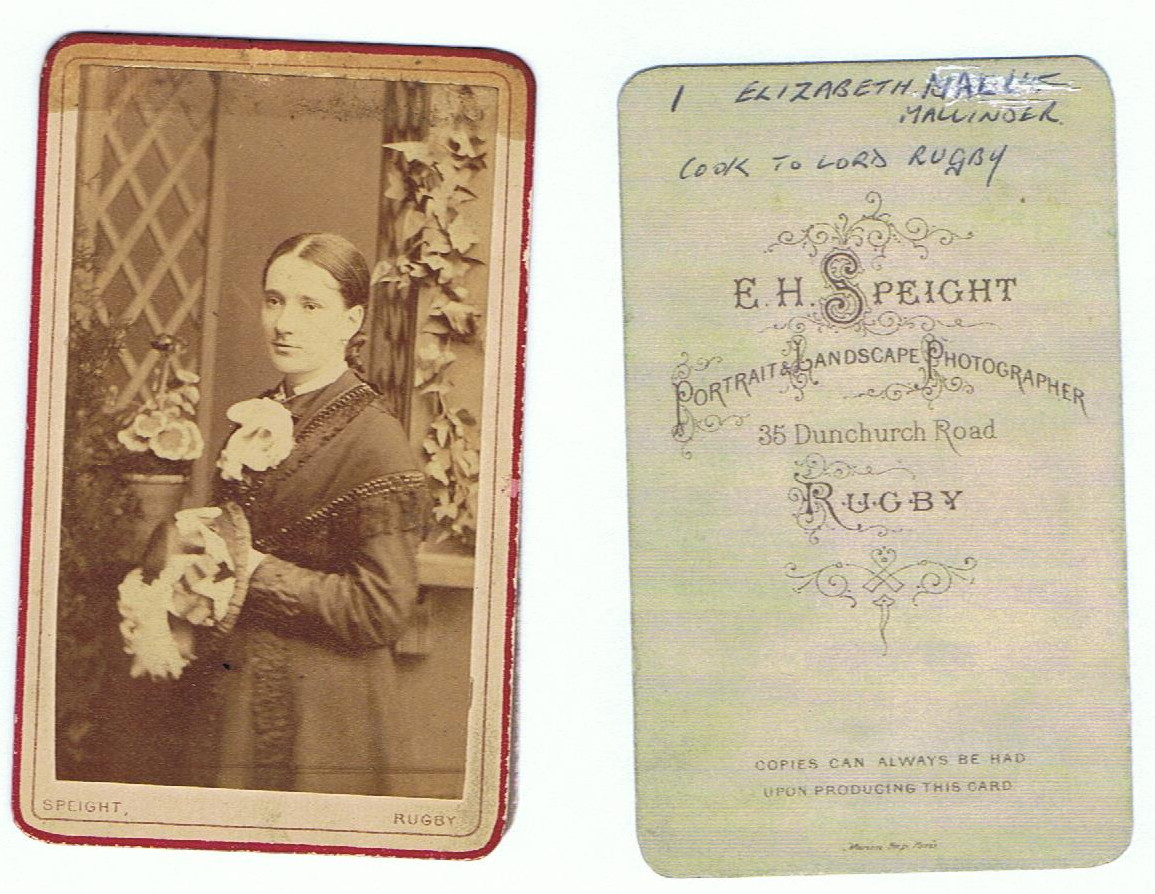 SPEIGHT,
RUGBY
1 ELIZABETH
MALLINDER.
COOK TO LORD RUGBY
E. H. SPEIGHT
PORTRAIT & LANDSCAPE PHOTOGRAPHER
35 Dunchurch Road
RUGBY
COPIES CAN ALWAYS BE HAD
UPON PRODUCING THIS CARD
Marion, Imp. Paris